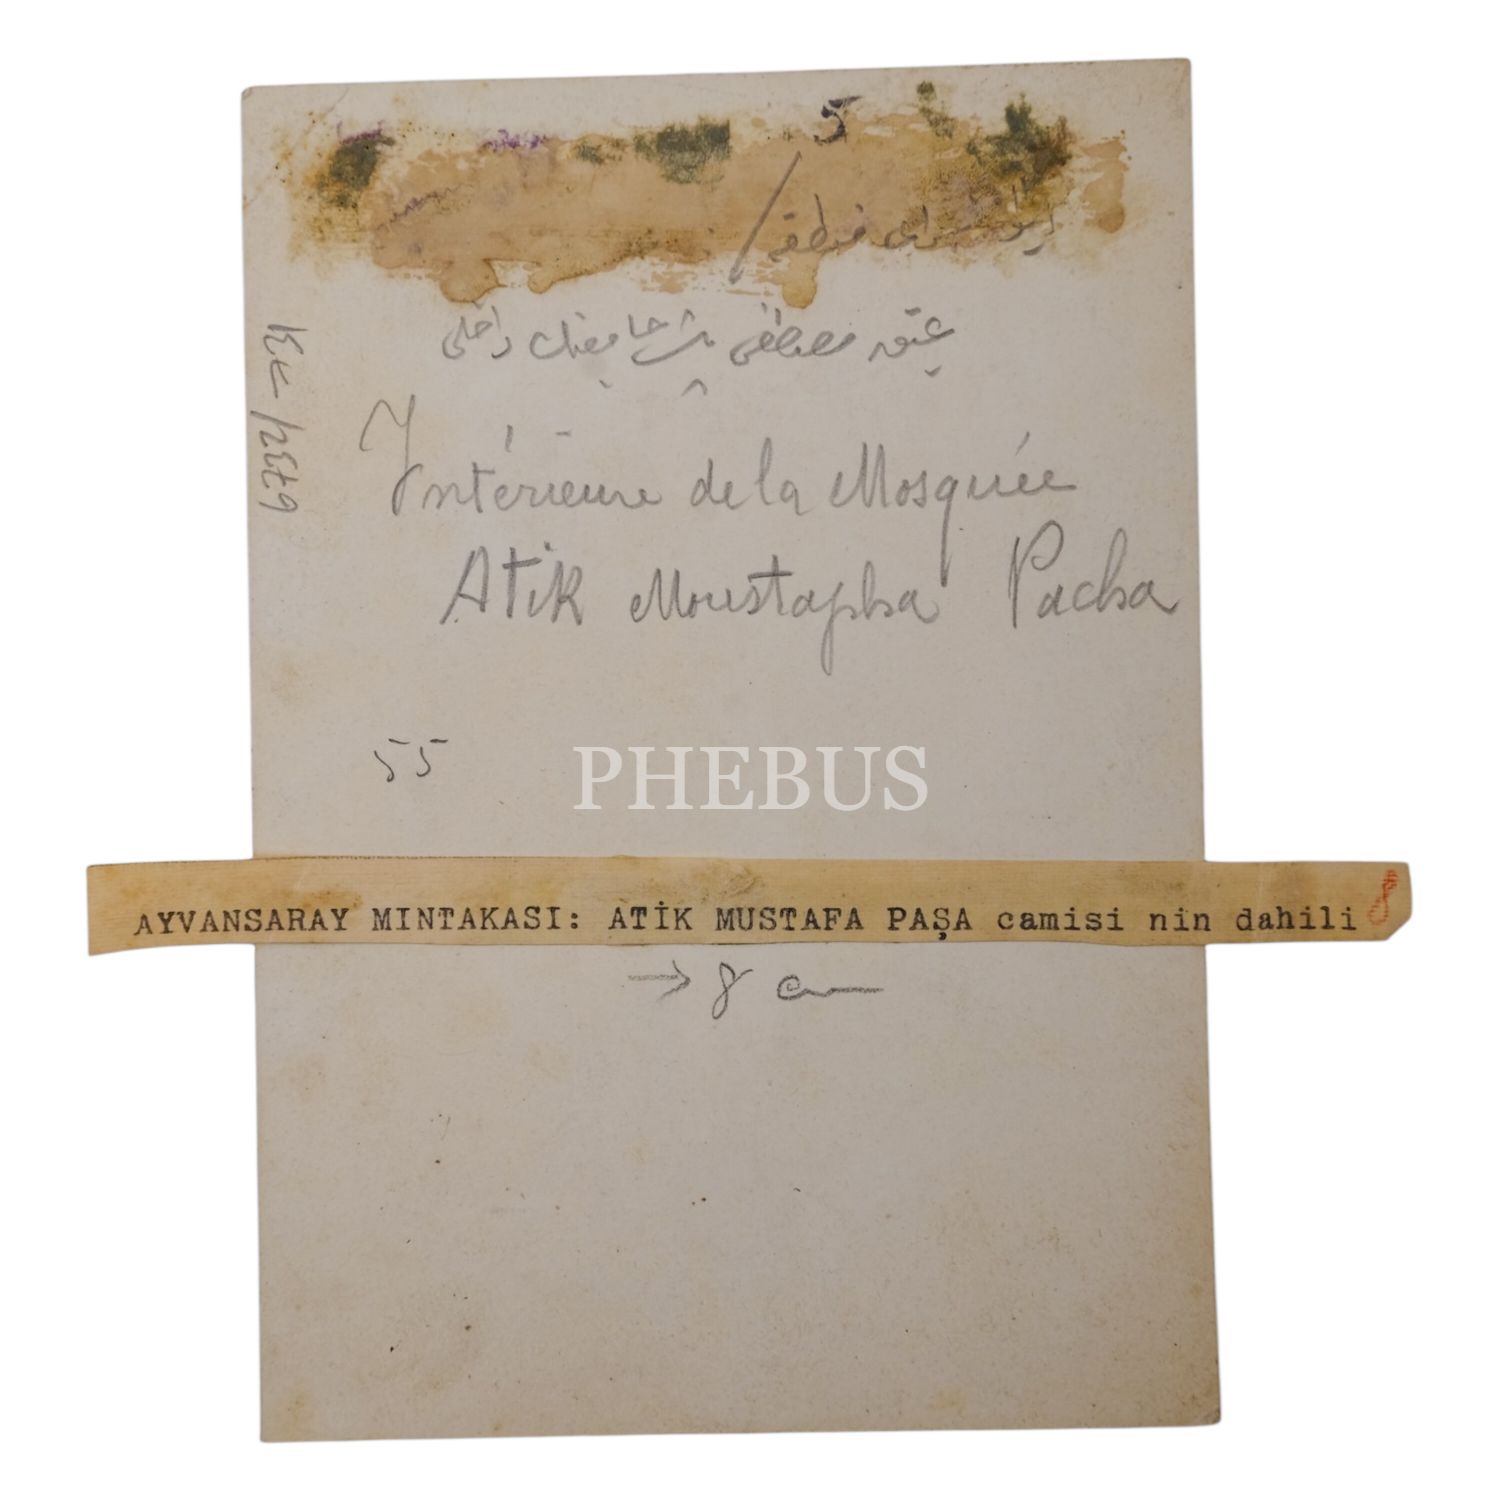 5
عتيق مصطفى پاشا جامعنك داخلى
Intérieure de la Mosquée
Atik Moustapha Pacha
55
PHEBUS
AYVANSARAY MINTAKASI: ATİK MUSTAFA PAŞA camisi nin dahili 8
→ 8 cm